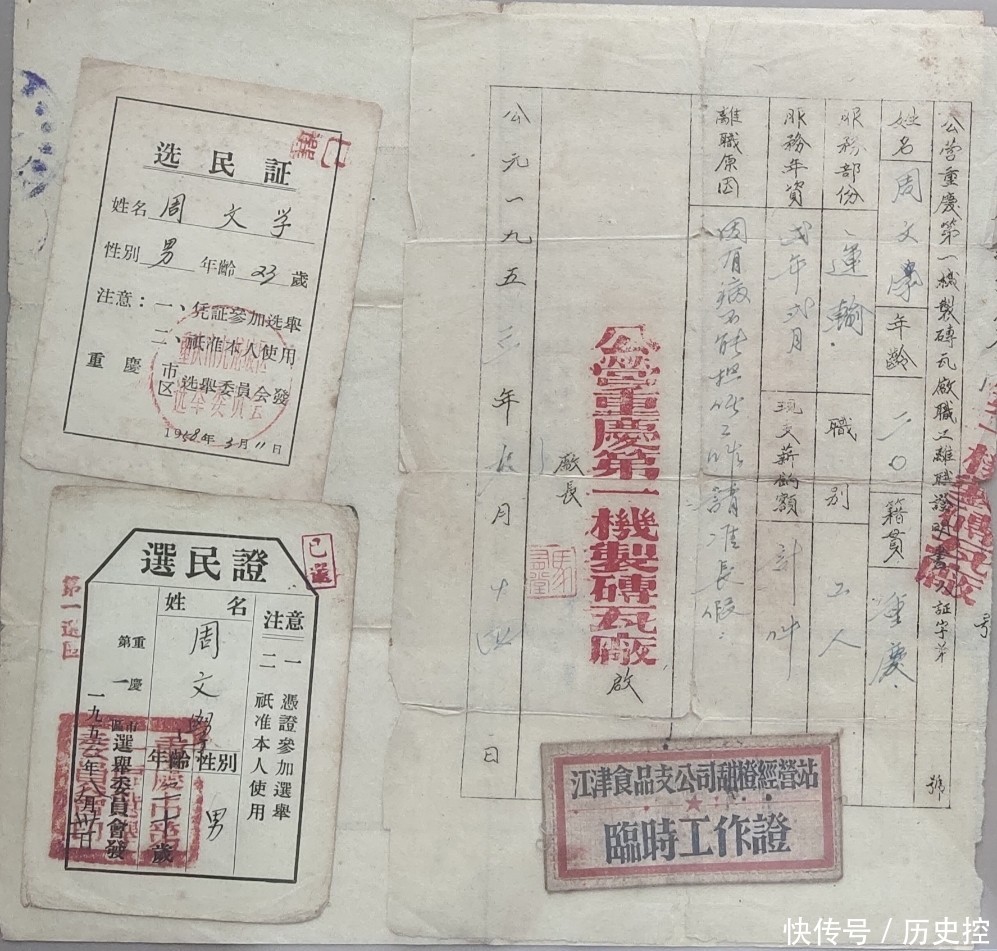 选民证
已選
姓名 周文学
性别 男 年齡 23 歲
注意：一、凭証參加选举
二、祇准本人使用
重慶 市区 选舉委員会發
1958年3月11日
選民證
已選
第一選区
注意
一 憑證參加選舉
二 祇准本人使用
姓名
周文學
性別 男
年齡 歲
重慶市第一區選舉委員會發
公営重慶第一機製磚瓦廠職工離職證明書 証字第 號
姓名 周文學 年龄 二〇 籍貫 重慶
服務部份 運輸 職別 工人
服務年資 弍年弍月 現支薪餉額 計件
離職原因 因有病不能担任工作請准長假
公營重慶第一機製磚瓦廠 啟
廠長
公元一九五三年 月 日
江津食品支公司甜橙經營站
臨時工作證
快传号 / 历史控